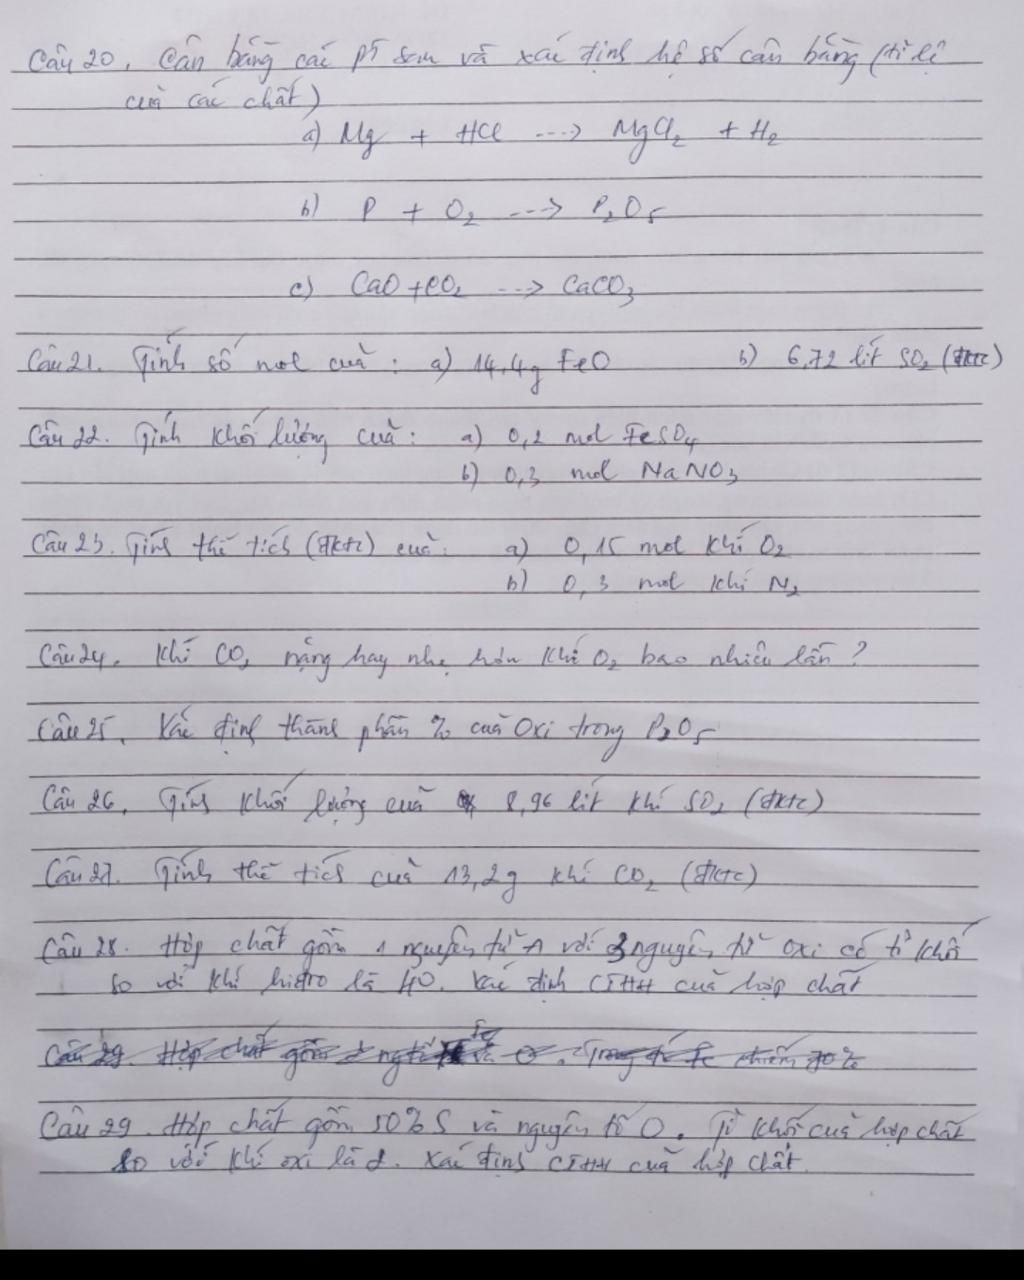 Câu 20. Cân bằng các pt sau và xác định hệ số cân bằng (tỉ lệ
của các chất)
a) Mg + HCl ---> MgCl2 + H2
b) P + O2 ---> P2O5
c) CaO + CO2 ---> CaCO3
Câu 21. Tính số mol của : a) 14,4g FeO b) 6,72 lít SO2 (đktc)
Câu 22. Tính khối lượng của : a) 0,2 mol FeSO4
b) 0,3 mol NaNO3
Câu 23. Tính thể tích (đktc) của : a) 0,15 mol khí O2
b) 0,3 mol khí N2
Câu 24. Khí CO2 nặng hay nhẹ hơn khí O2 bao nhiêu lần ?
Câu 25. Xác định thành phần % của Oxi trong P2O5
Câu 26. Tính khối lượng của 8,96 lít khí SO2 (đktc)
Câu 27. Tính thể tích của 13,2g khí CO2 (đktc)
Câu 28. Hợp chất gồm 1 nguyên tử A với 3 nguyên tử oxi có tỉ khối
so với khí hidro là 40. Xác định CTHH của hợp chất
Câu 29. Hợp chất gồm Fe và O. Trong đó Fe chiếm 70%
Câu 29. Hợp chất gồm 50% S và nguyên tố O. Tỉ khối của hợp chất
so với khí oxi là 2. Xác định CTHH của hợp chất.